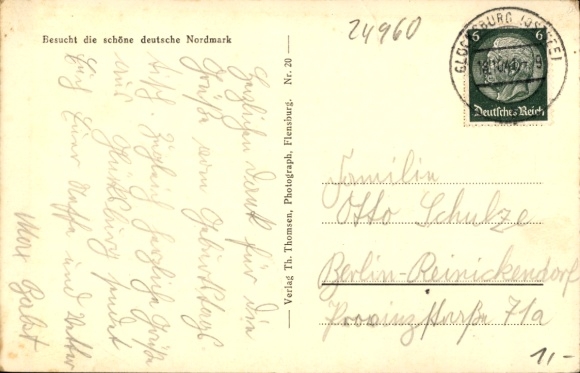 Besucht die schöne deutsche Nordmark
24960
GLÜCKSBURG (OSTSEE)
6 6
Deutsches Reich
Herzlichen Dank für die
Grüße vom Geburtstags-
tisch. Zugleich herzliche Grüße
aus Glücksburg sendet
Euch Euer Neffe und Vetter
Max
Verlag Th. Thomsen, Photograph, Flensburg. Nr. 20
Familie
Otto Schulze
Berlin-Reinickendorf
Provinzstraße 71a
1,-